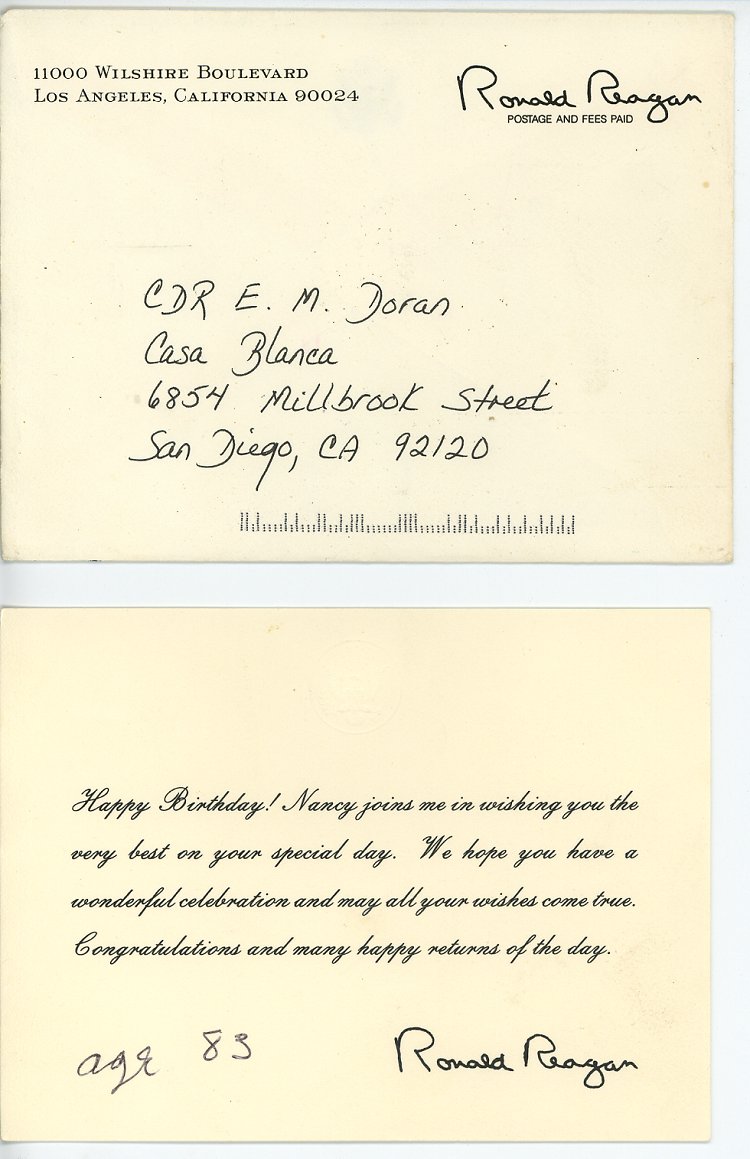 11000 Wilshire Boulevard
Los Angeles, California 90024
Ronald Reagan
POSTAGE AND FEES PAID
CDR E. M. Doran
Casa Blanca
6854 Millbrook Street
San Diego, CA 92120
Happy Birthday! Nancy joins me in wishing you the
very best on your special day. We hope you have a
wonderful celebration and may all your wishes come true.
Congratulations and many happy returns of the day.
age 83
Ronald Reagan